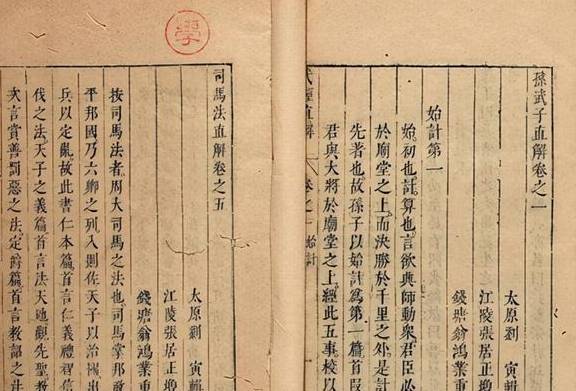 孫武子直解卷之一
太原劉 寅輯
江陵張居正增
錢塘翁鴻業重
始計第一
始初也計算也言欲興師動衆君臣必
於廟堂之上而決勝於千里之外是計
先著也故孫子以始計爲第一篇首段
君與大將於廟堂之上經此五事校以
經直解 卷之一 始計
學
司馬法直解卷之五
太原劉 寅輯
江陵張居正增
錢塘翁鴻業重
按司馬法者周大司馬之法也司馬掌邦
平邦國乃六卿之列入則佐天子以治國出
兵以定亂故此書仁本篇首言仁義禮智信
伐之法天子之義篇首言法天地觀先聖
大言賞善罰惡之法定爵篇首言教詔之法